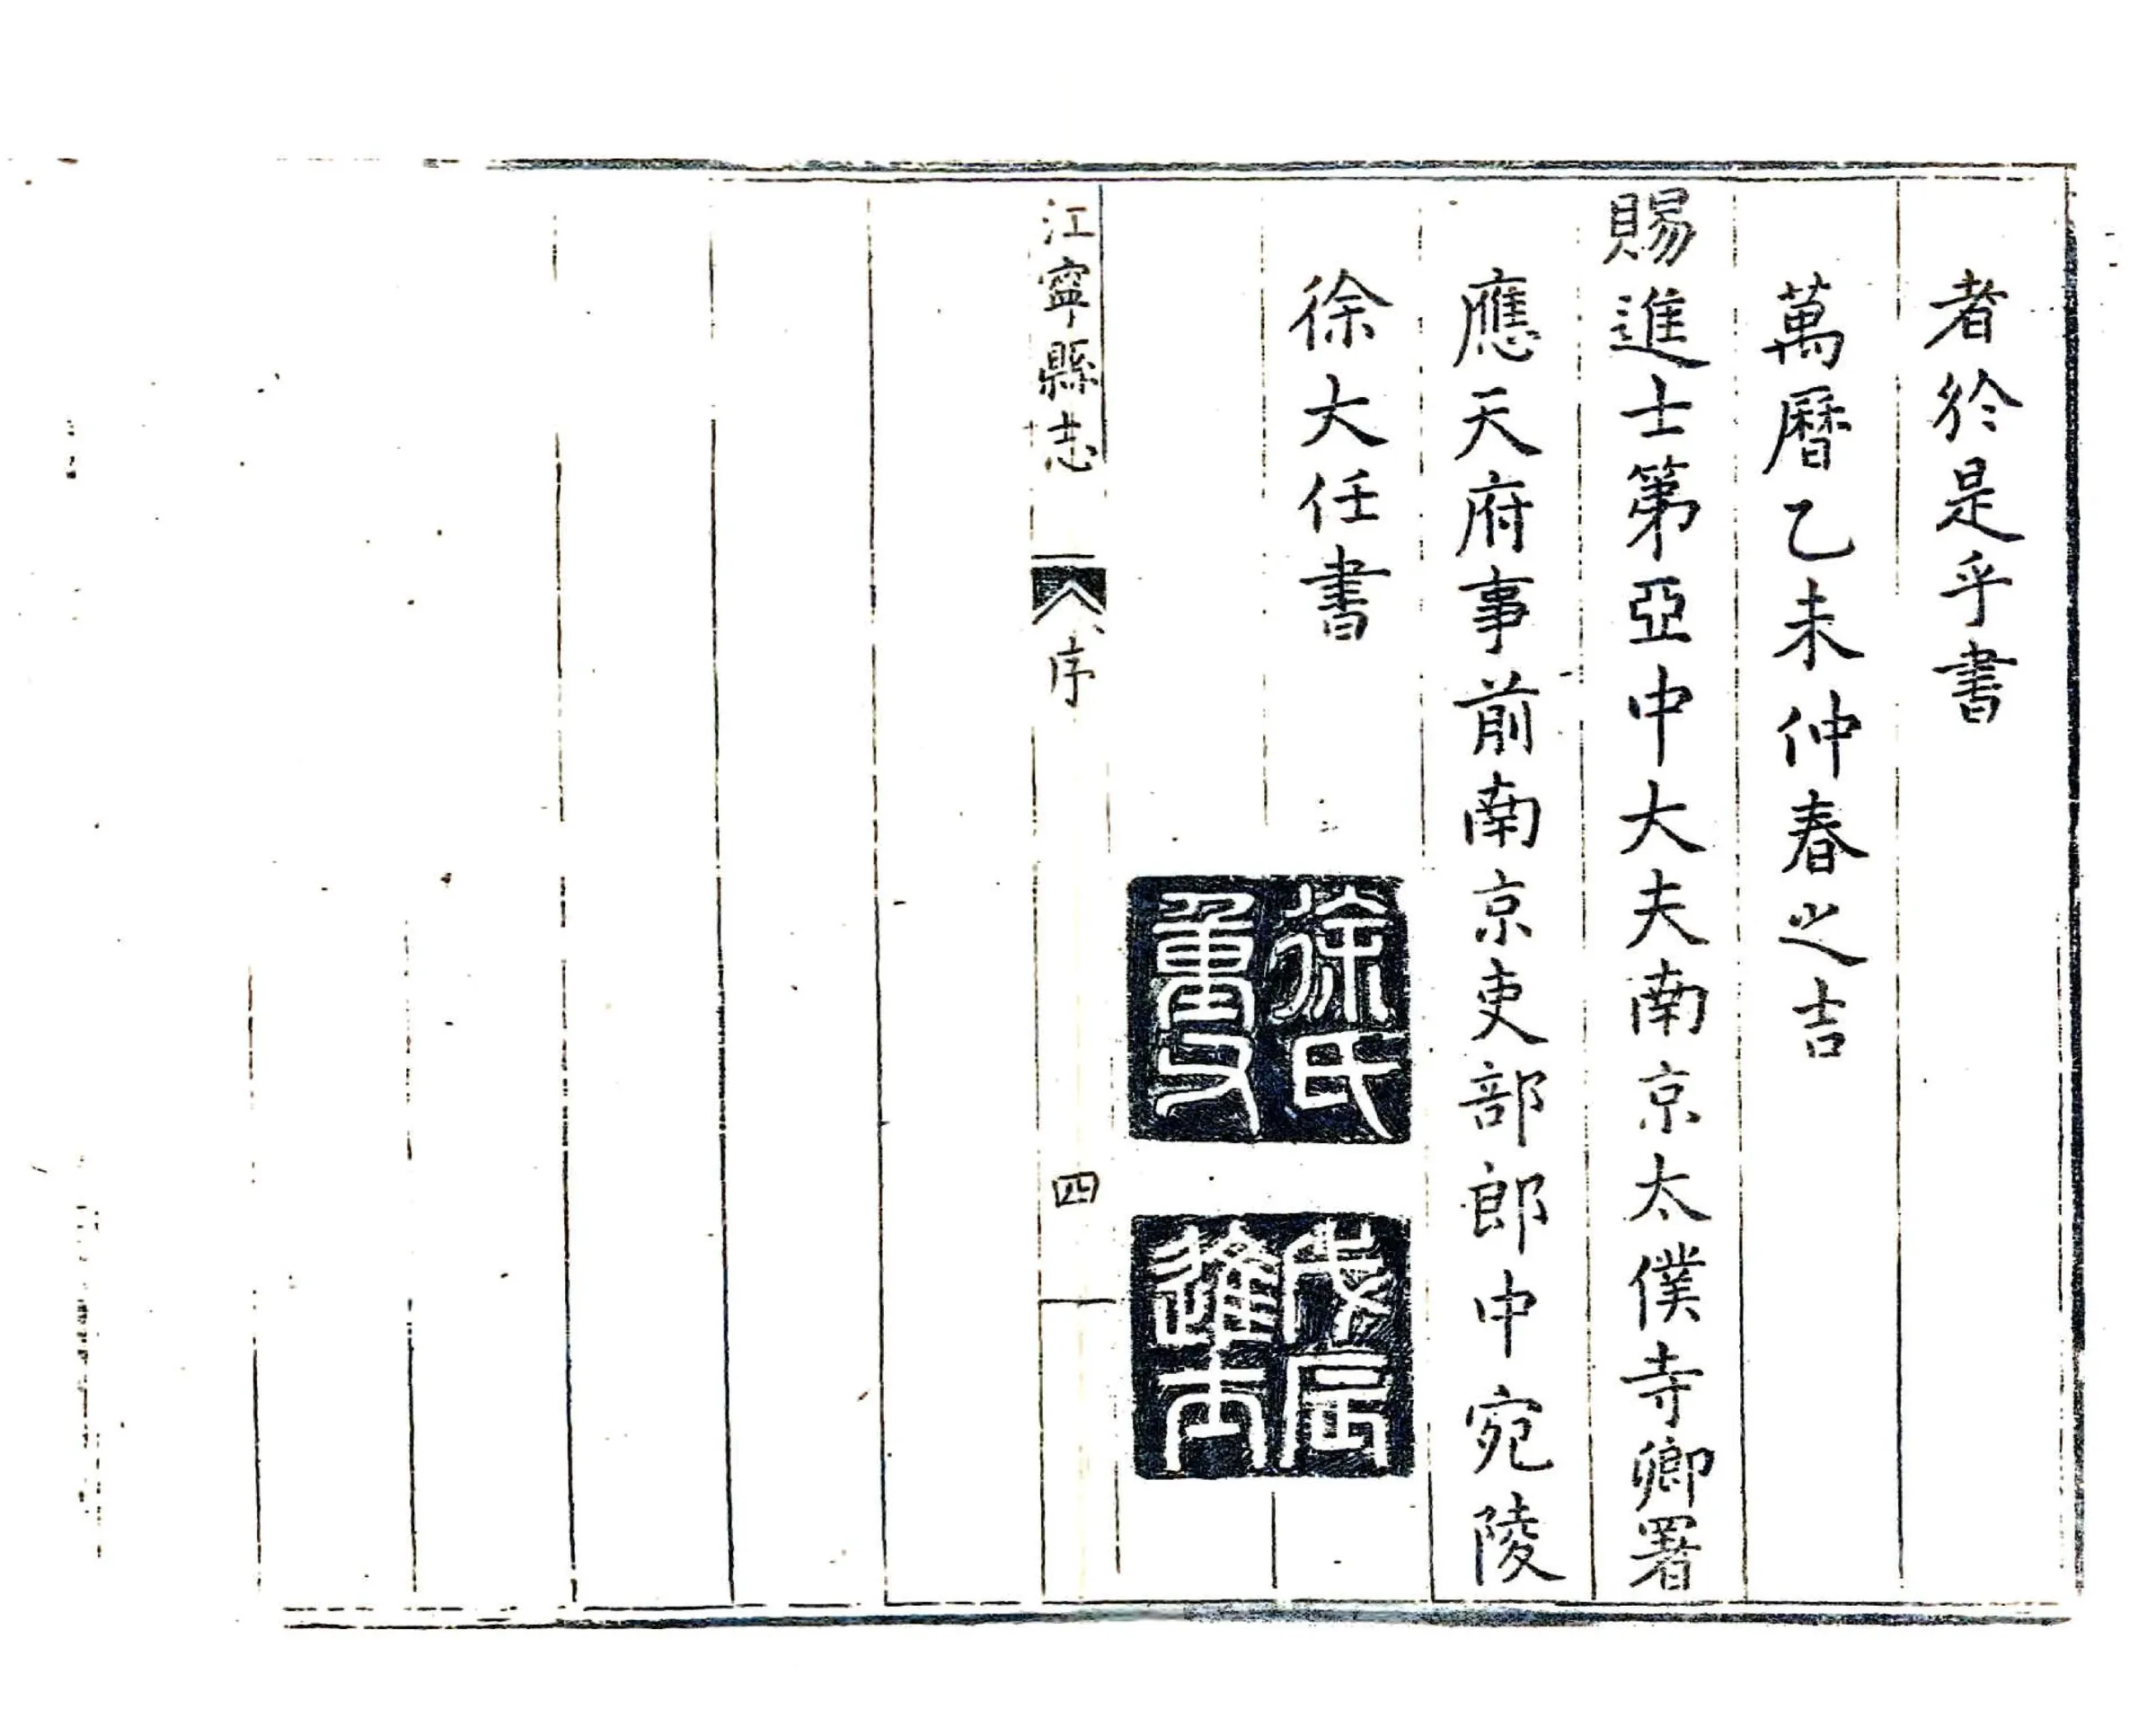 者於是乎書
萬曆乙未仲春之吉
賜進士第亞中大夫南京太僕寺卿署
應天府事前南京吏部郎中宛陵
徐大任書
徐氏
重夫
戊辰
進士
江寧縣志
序
四